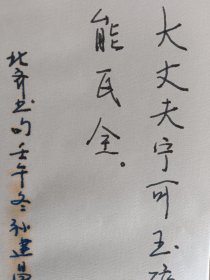 大丈夫宁可玉碎
能瓦全。
北齐书句壬午冬建昌